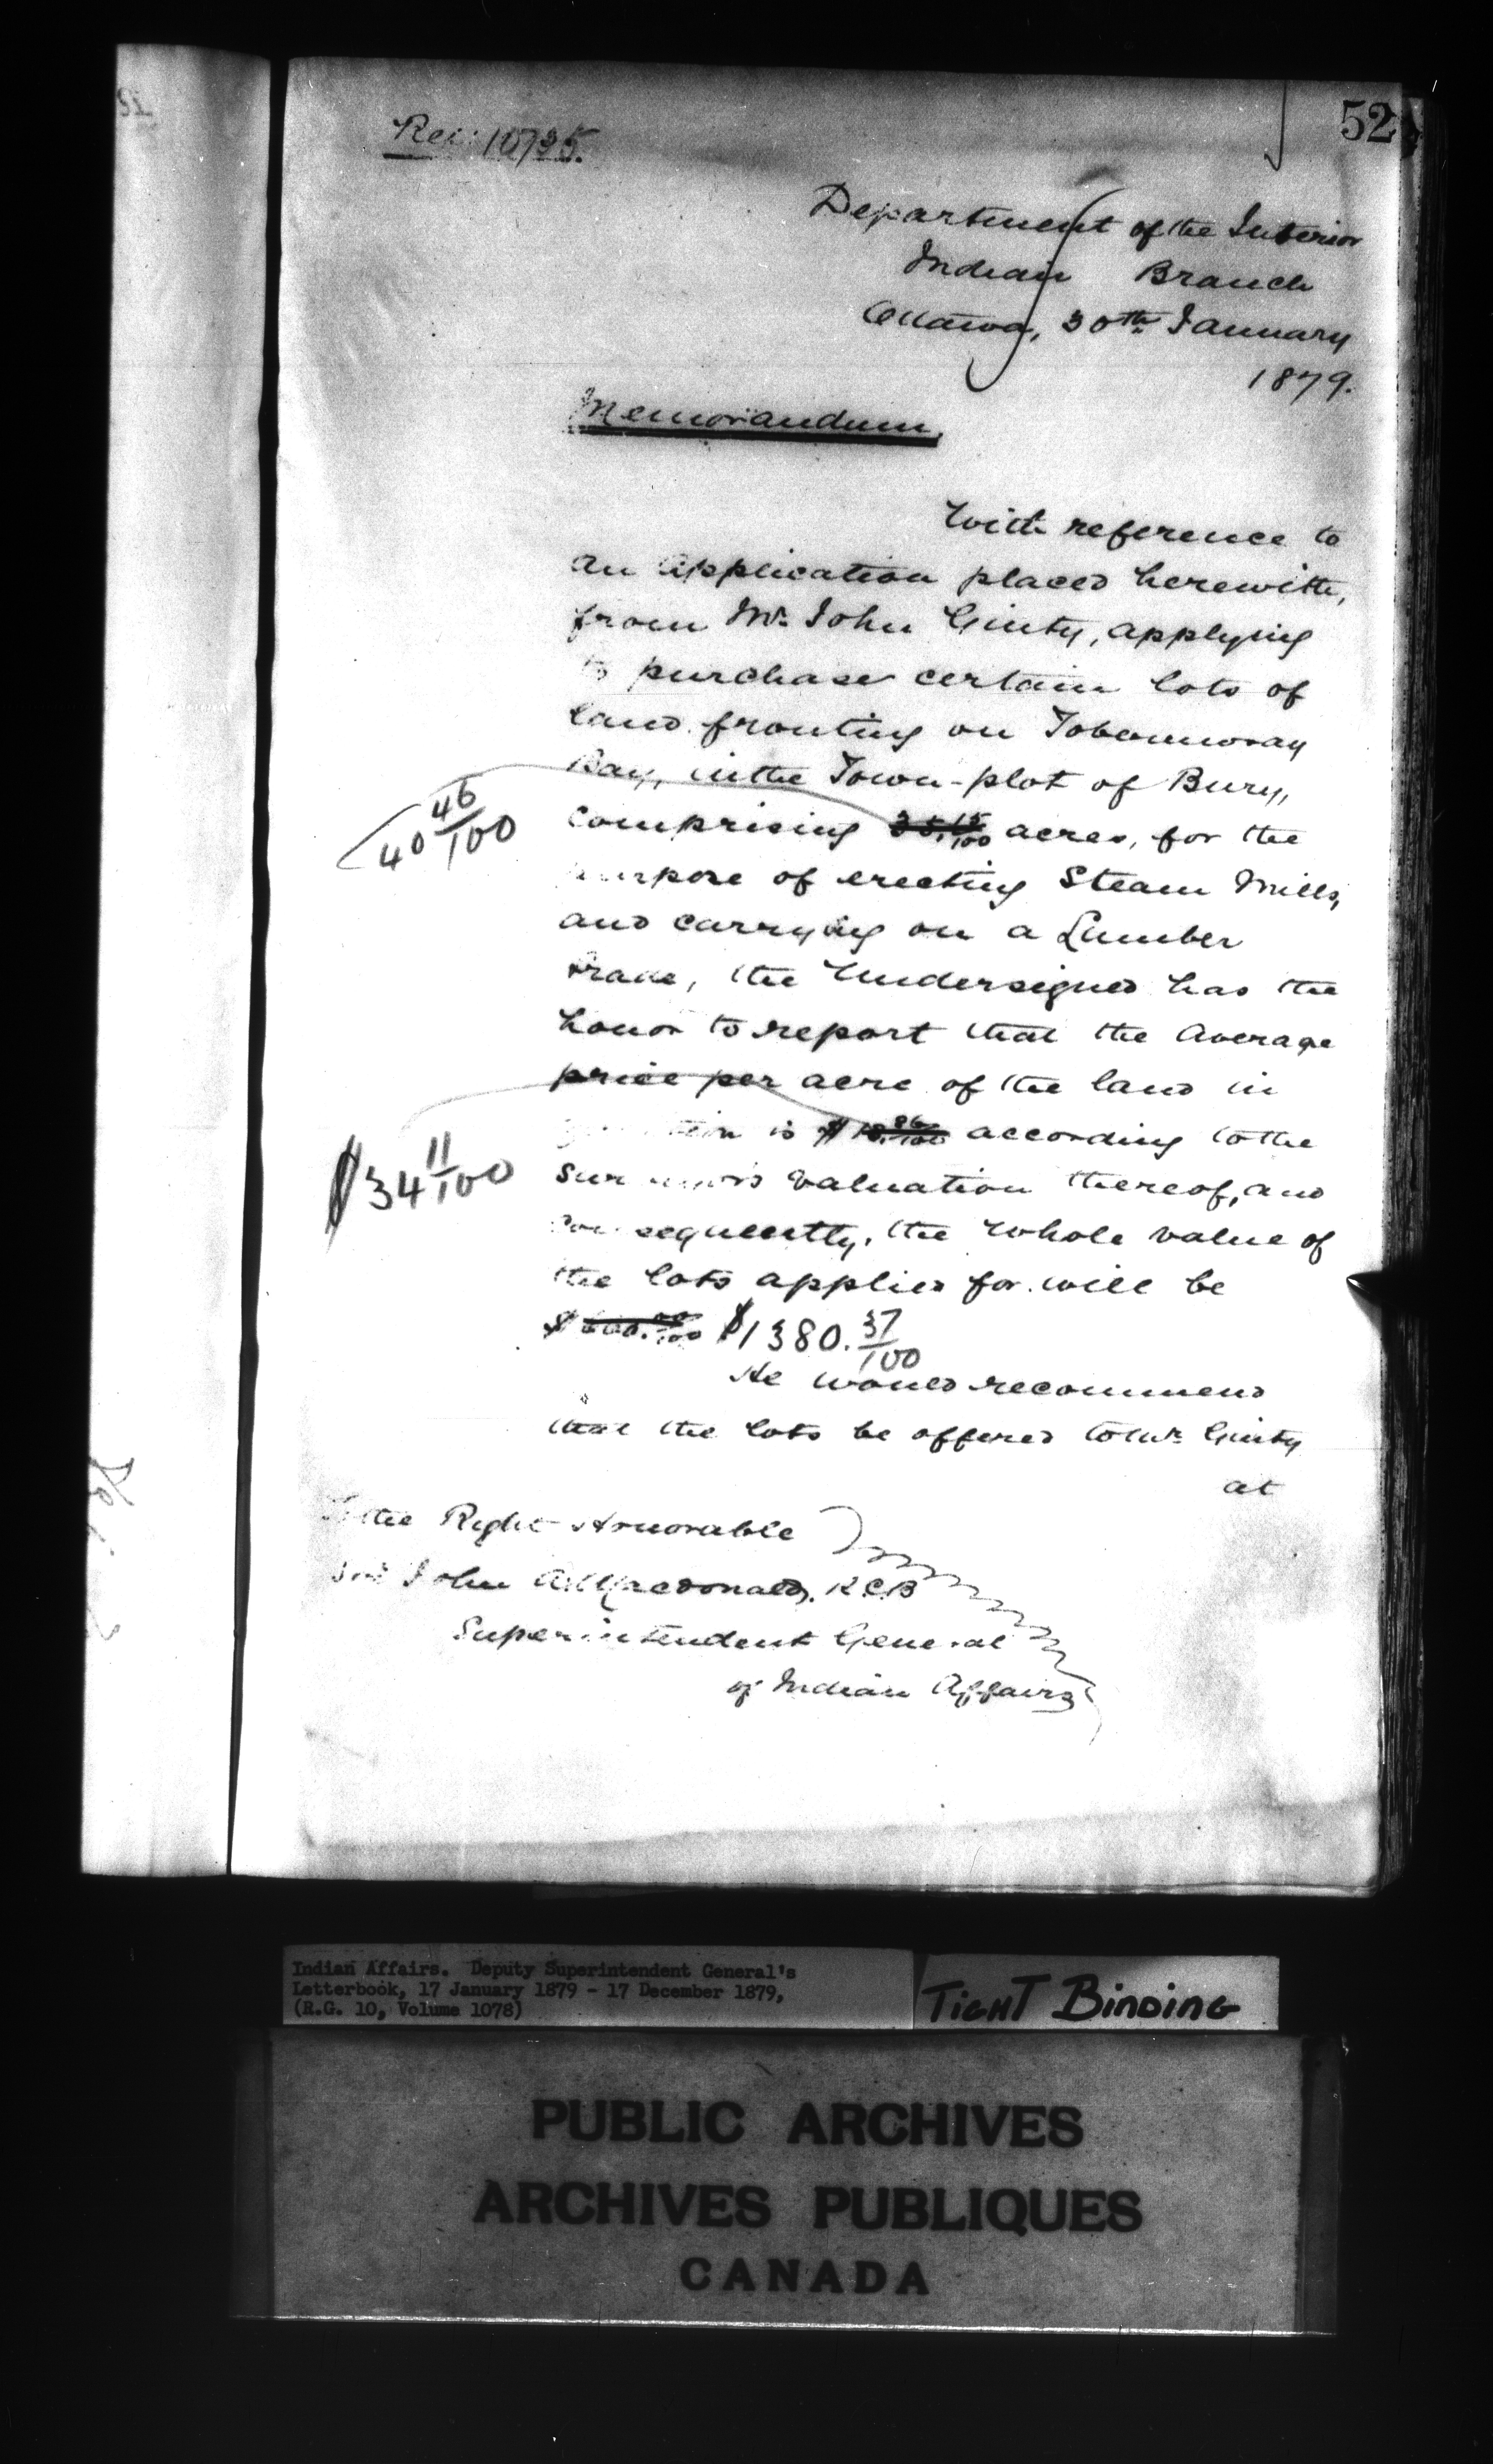 52
Ref: 10735.
Department of the Interior
Indian Branch
Ottawa, 30th January
1879.
Memorandum,
With reference to
an Application placed herewith,
from Mr. John Ginty, applying
to purchase certain lots of
land fronting on Tobermoray
Bay, in the Town-plot of Bury,
40 46/100
comprising 35.15/100 acres, for the
purpose of erecting Steam Mills,
and carrying on a Lumber
trade, the Undersigned has the
honor to report that the Average
price per acre of the land in
question is $ according to the
$34 11/100
Surveyor's valuation thereof, and
consequently, the whole value of
the lots applied for will be
$ $1380.37/100
He would recommend
that the lots be offered to Mr. Ginty
at
To the Right Honorable
Sir John A. Macdonald, K.C.B
Superintendent General
of Indian Affairs
Indian Affairs. Deputy Superintendent General's
Letterbook, 17 January 1879 - 17 December 1879,
(R.G. 10, Volume 1078)
TIGHT BINDING
PUBLIC ARCHIVES
ARCHIVES PUBLIQUES
CANADA